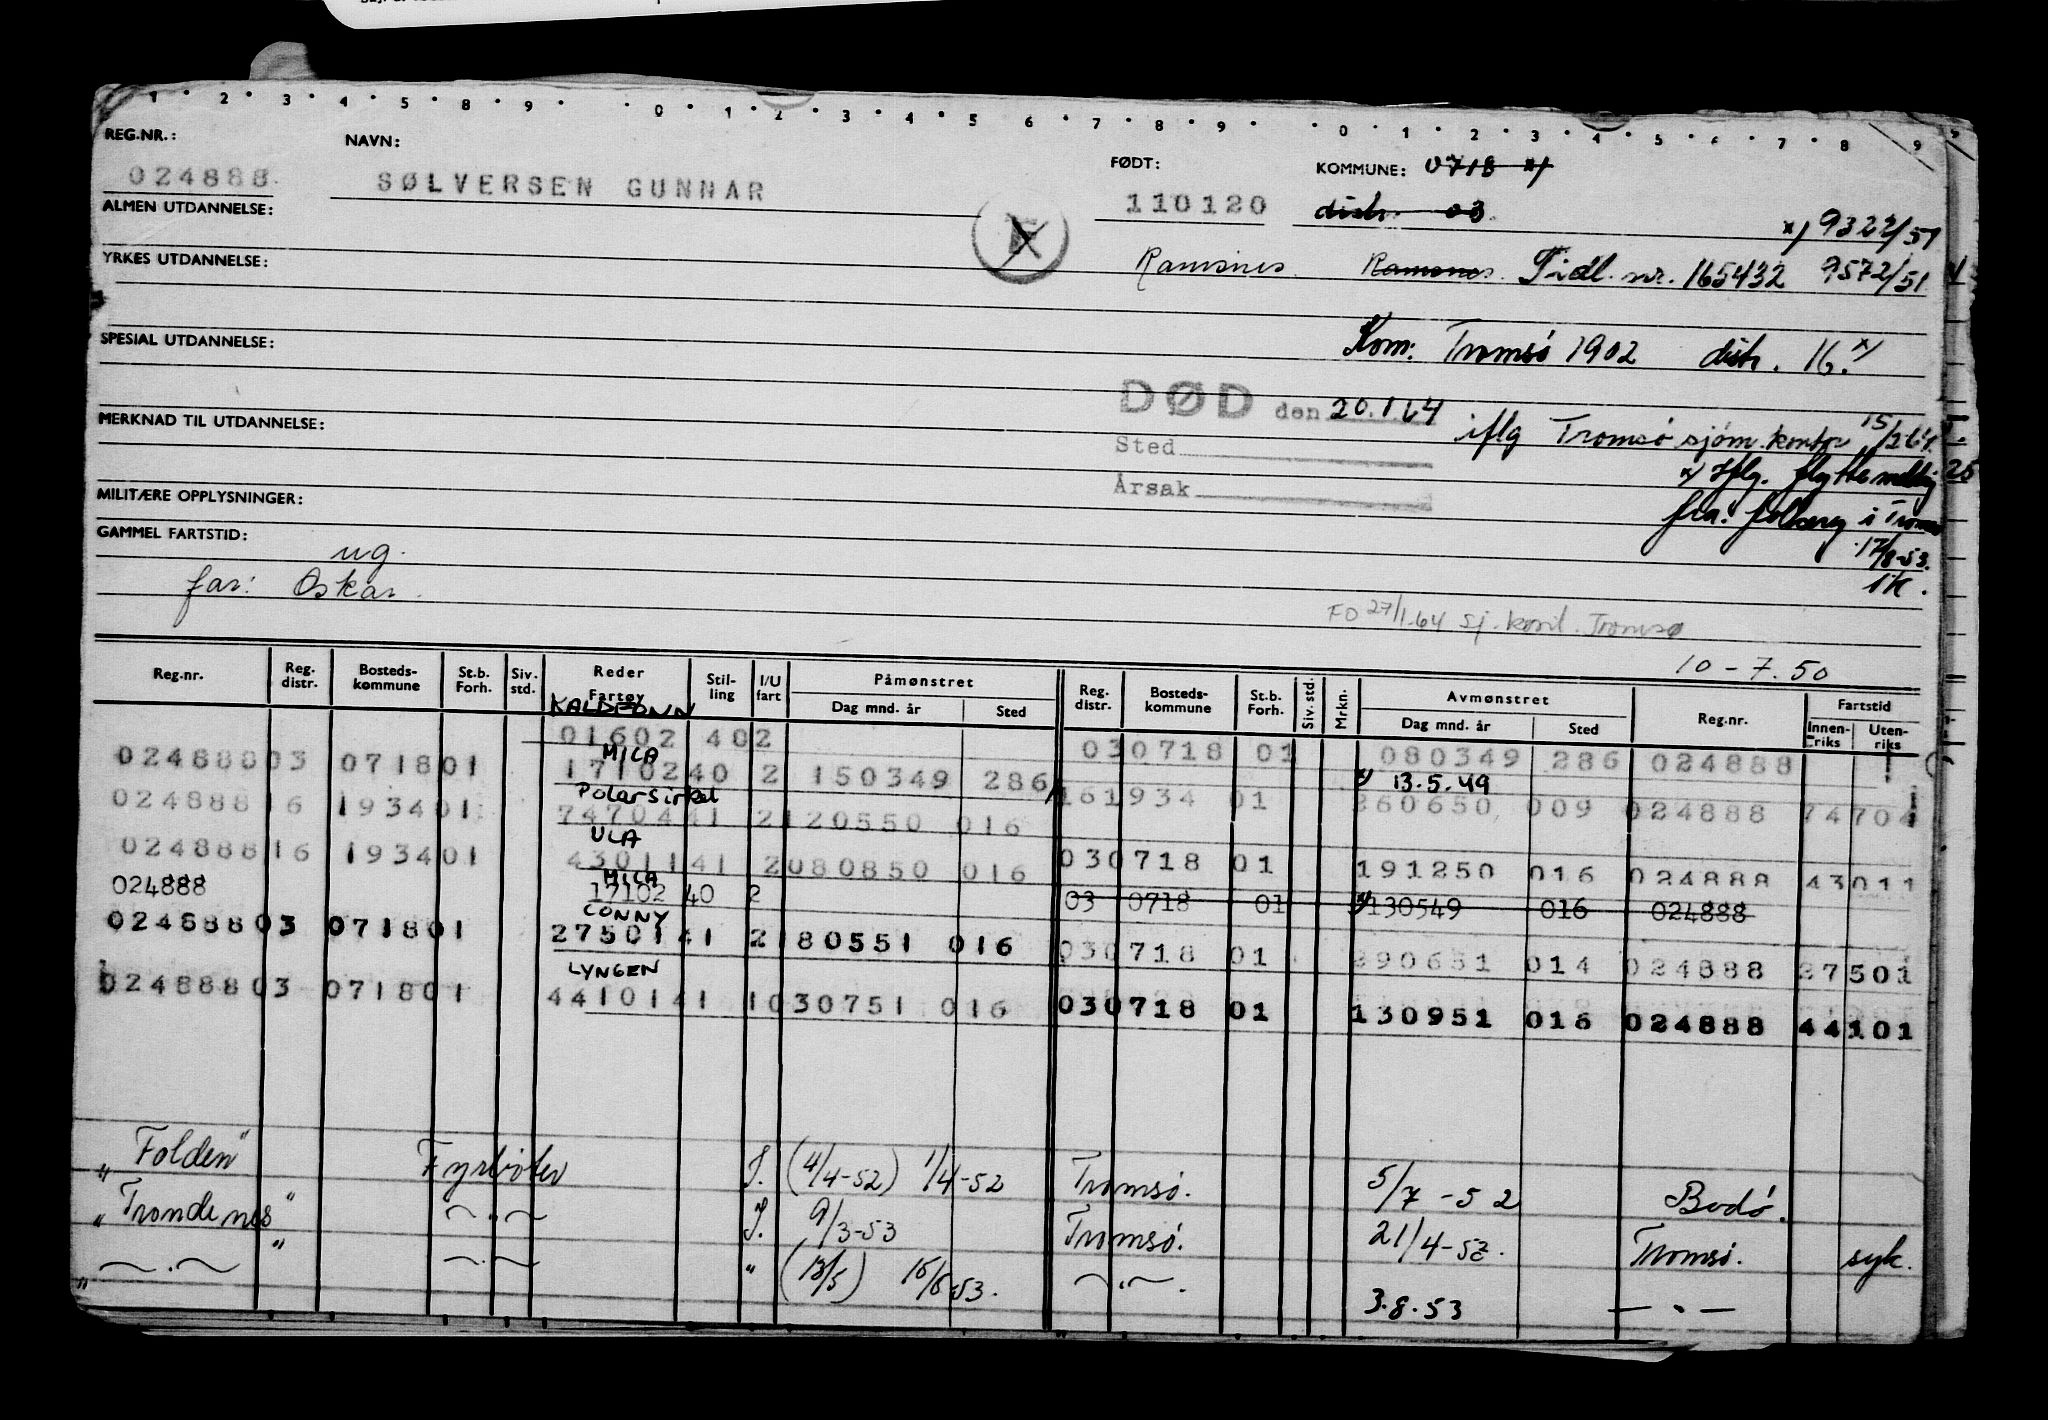 1 2 3 4 5 8 9 0 1 2 3 4 5 6 7 8 9 0 1 2 3 4 5 6 7 8 9
REG.NR.: NAVN: FØDT: KOMMUNE: 0718 x)
024888 SØLVERSEN GUNNAR 110120 distr. 03.
ALMEN UTDANNELSE: x) 9322/51
YRKES UTDANNELSE: Ramsnes Ramsnes. Tidl. nr. 165432 9572/51
SPESIAL UTDANNELSE: Kom: Tromsø 1902 distr. 16. x)
DØD den 20.1.64 iflg Tromsø sjøm.kontor 15/2 64
MERKNAD TIL UTDANNELSE:
Sted
x) Iflg. flyttemelding
Årsak
MILITÆRE OPPLYSNINGER: fra folkereg i Tromsø
GAMMEL FARTSTID: 17/8-53.
ug. 1K.
far: Oskar.
FO 27/1.64 sj. kont. Tromsø
10-7.50
Reg.nr. Reg. distr. Bosteds- kommune St.b. Forh. Siv. std. Reder Fartøy Stil- ling I/U fart Påmønstret Dag mnd. år Sted Reg. distr. Bosteds- kommune St.b. Forh. Siv. std. Mrkn. Avmønstret Dag mnd. år Sted Reg.nr. Fartstid Innen- riks Uten- riks
KALDFONN
01602 402 030718 01 080349 286 024888
MICA
024888 03 0718 01 17102 40 2 150349 286 x) 13.5.49
Polarsirkel
024888 16 1934 01 74704 41 2 120550 016 161934 01 260650 009 024888 74704
ULA
024888 16 1934 01 43011 41 2 080850 016 030718 01 191250 016 024888 43011
MICA
024888 17102 40 2 03 0718 01 x) 130549 016 024888
CONNY
024888 03 0718 01 27501 41 2 180551 016 030718 01 290651 014 024888 27501
LYNGEN
024888 03 0718 01 44101 41 1 030751 016 030718 01 130951 016 024888 44101
"Folden" Fyrbøter I. (4/4-52) 1/4-52 Tromsø. 5/7-52 Bodø.
"Trondenes" —"— I. 9/3-53 Tromsø. 21/4-52. Tromsø. syk.
"—.—" —.— " (13/5) 16/6-53. —.—. 3.8.53 —.—